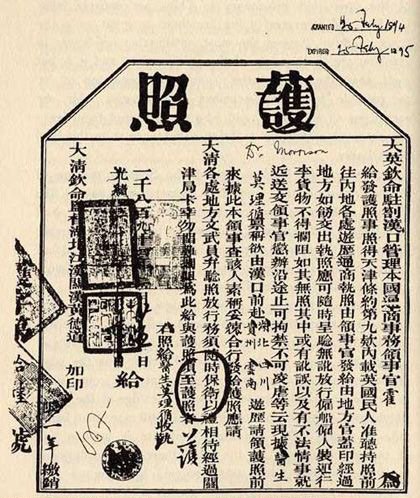 GRANTED 25 Feby 1894
EXPIRED 25 Feby 1895
護照
Dr. Morrison
大英欽命駐劄漢口管理本國通商事務領事官 霍 為
給發護照事照得天津條約第九款內載英國民人准聽持照前
往內地各處遊歷通商執照由領事官發給由地方官蓋印經過
地方如飭交出執照應可隨時呈驗無訛放行僱船僱人裝運行
李貨物不得攔阻如其無照其中或有訛誤以及有不法情事就
近送交領事官懲辦沿途止可拘禁不可凌虐等云現據醫生
莫理循稟稱欲由漢口前赴湖北四川貴州雲南遊歷請領護照前
來據此本領事查該人素稱妥練合行發給護照應請
大清各處地方文武員弁驗照放行務須時保衛以禮相待經過關
津局卡幸勿為此給與護照須至護照者
護
右照給醫生莫理循收執
一千八百九十 日
光緒 日 給
大清欽命湖北江漢關漢黃德道 加印
限一年繳銷